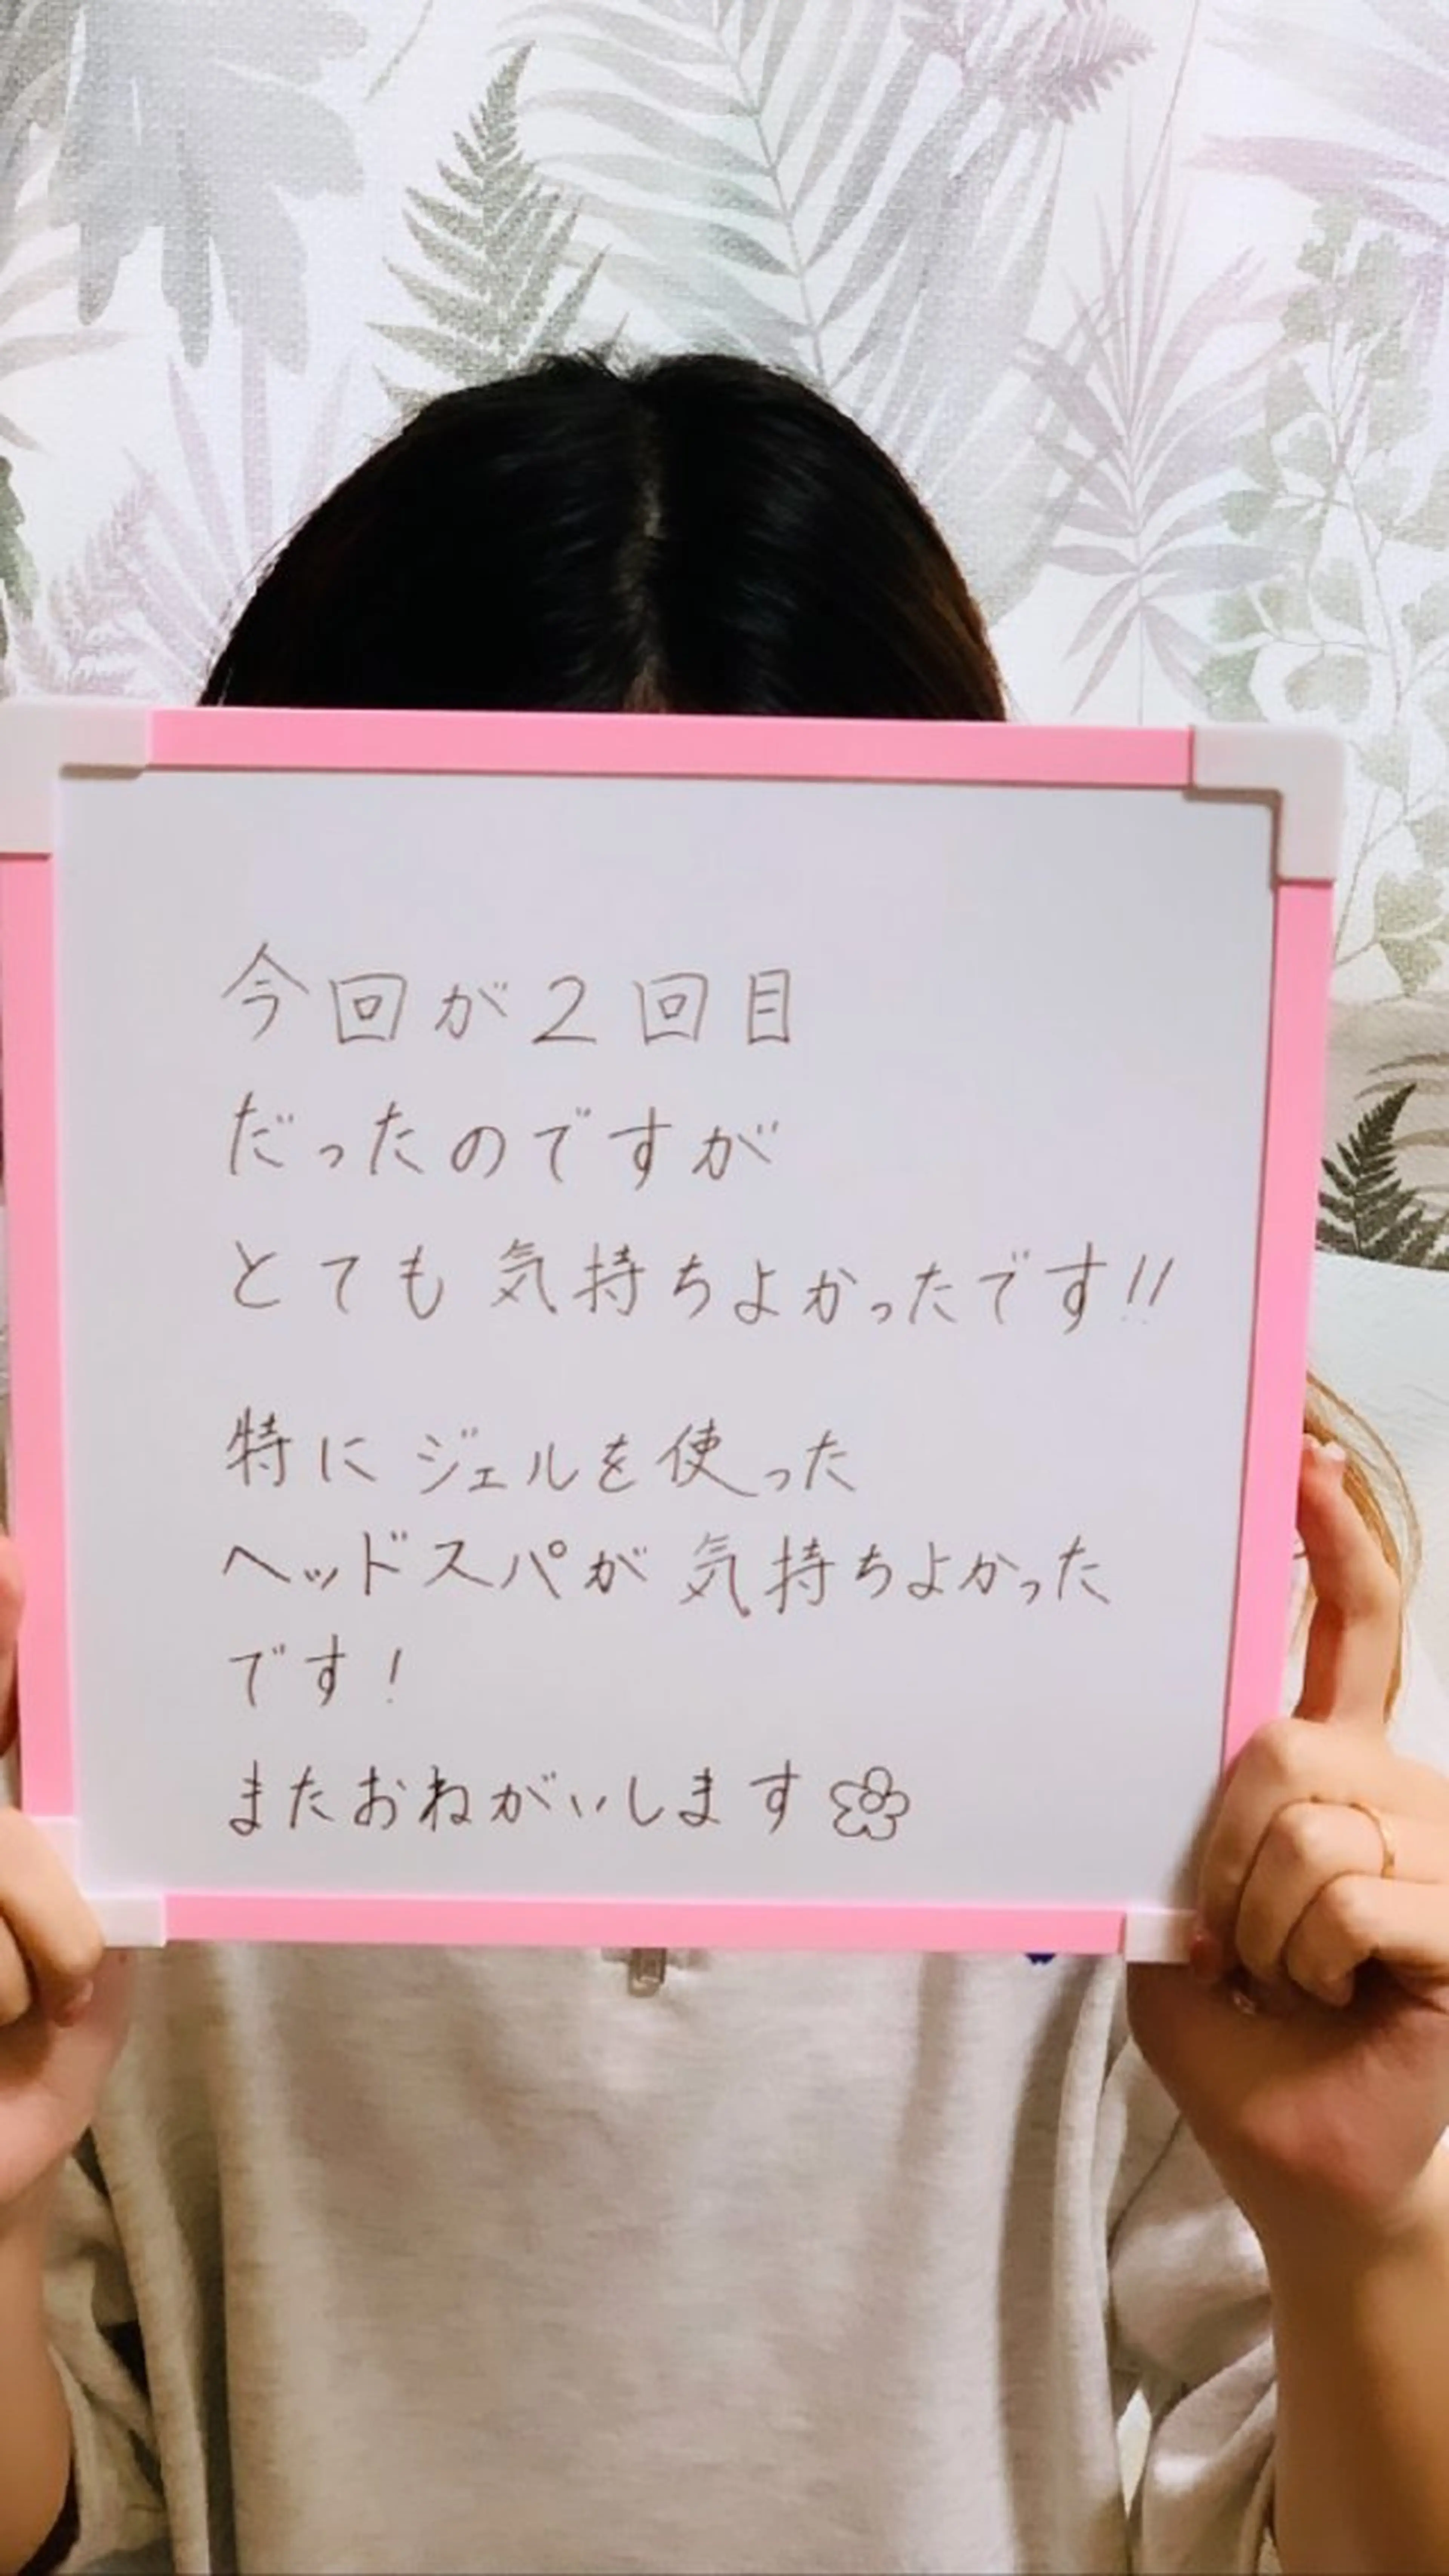 今回が2回目
だったのですが
とても気持ちよかったです!!
特にジェルを使った
ヘッドスパが気持ちよかった
です!
またおねがいします